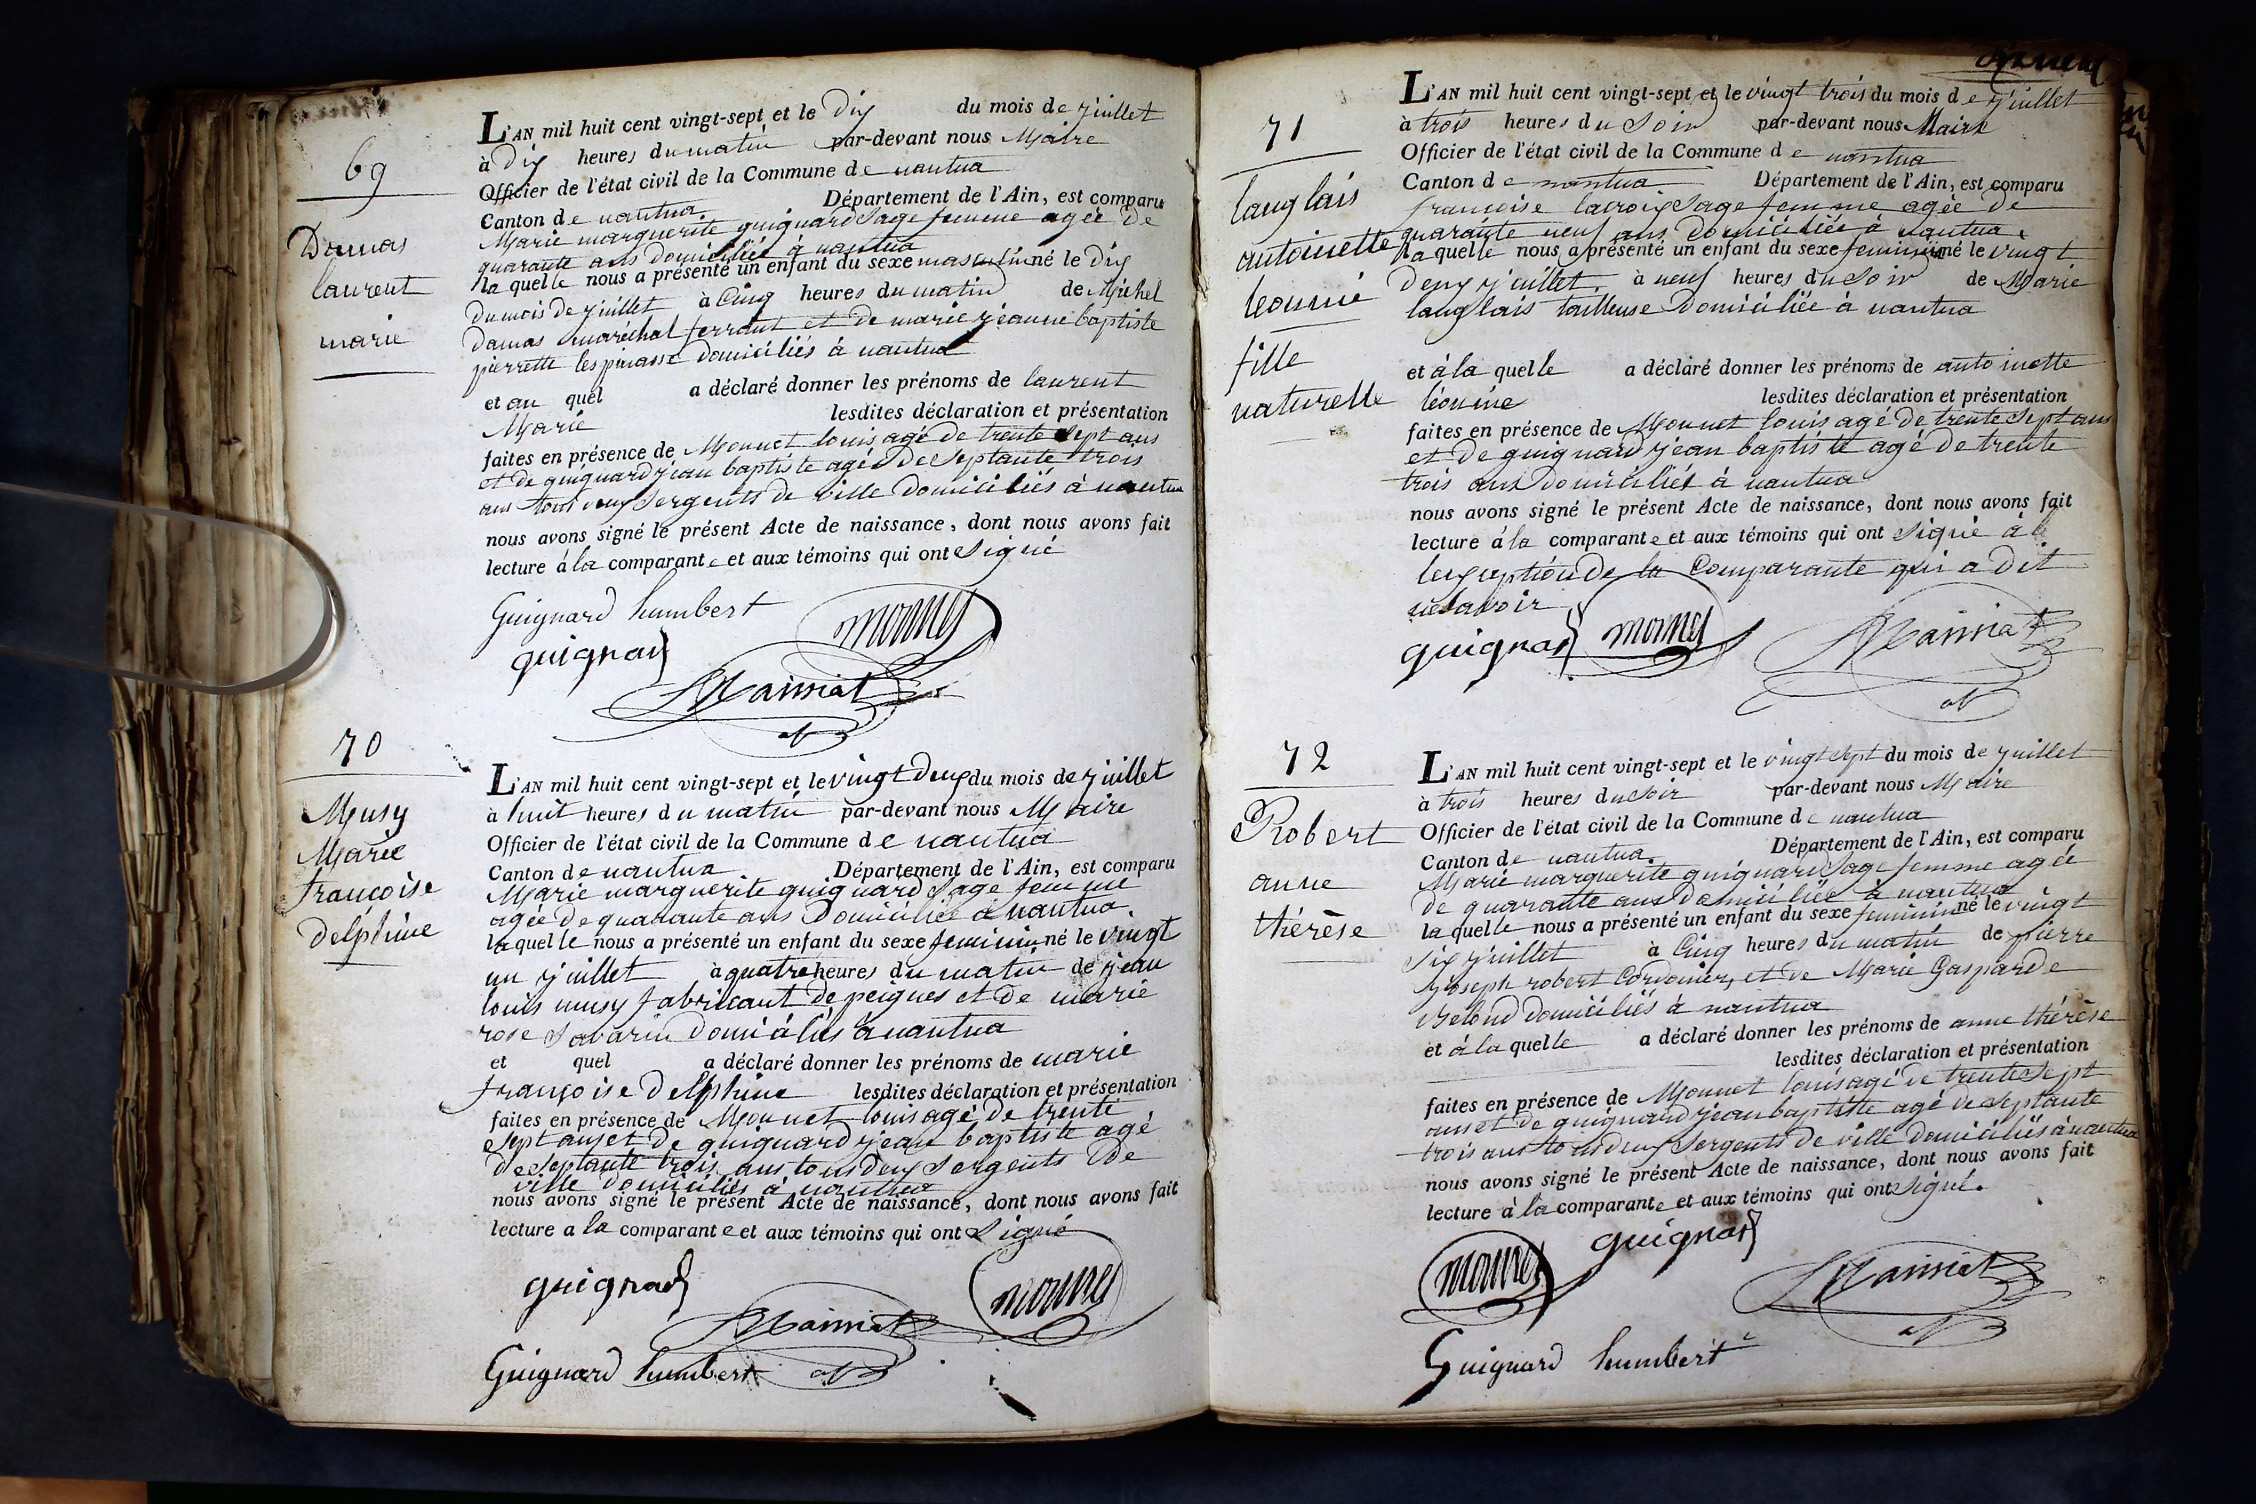 69
Damas
laurent
marie
L'AN mil huit cent vingt-sept et le dix du mois de juillet
à dix heures du matin par-devant nous Maire
Officier de l'état civil de la Commune de nantua
Canton de nantua Département de l'Ain, est comparu
Marie marguerite guignard Sage femme agée de
quarante ans domiciliée à nantua
la quelle nous a présenté un enfant du sexe masculin né le dix
du mois de juillet à Cinq heures du matin de Michel
Damas maréchal ferrant et de marie jeanne baptiste
pierrette lespinasse domiciliés à nantua
et au quel a déclaré donner les prénoms de laurent
Marie lesdites déclaration et présentation
faites en présence de Monnet louis agé de trente Sept ans
et de guignard jean baptiste agée de Septante trois
ans tous deux Sergents de ville Domiciliés à nantua
nous avons signé le présent Acte de naissance, dont nous avons fait
lecture à la comparante et aux témoins qui ont Signé
Guignard humbert
monnet
guignard
70
Musy
Marie
françoise
Delphine
L'AN mil huit cent vingt-sept et le vingt Deux du mois de juillet
à huit heures du matin par-devant nous Maire
Officier de l'état civil de la Commune de nantua
Canton de nantua Département de l'Ain, est comparu
Marie marguerite guignard Sage femme
agée de quarante ans Domiciliée à nantua
la quelle nous a présenté un enfant du sexe feminin né le vingt
un juillet à quatre heures du matin de jean
louis musy fabricant de peignes et de marie
rose Savarin domiciliés à nantua
et quel a déclaré donner les prénoms de marie
françoise delphine lesdites déclaration et présentation
faites en présence de Monnet louis agé de trente
Sept ans et de guignard jean baptiste agé
de Septante trois ans tous deux Sergents de
ville domiciliés à nantua
nous avons signé le présent Acte de naissance, dont nous avons fait
lecture a la comparante et aux témoins qui ont Signé
guignard
monnet
Guignard humbert
71
langlais
antoinette
leonine
fille
naturelle
L'AN mil huit cent vingt-sept et le vingt trois du mois de juillet
à trois heures du Soir par-devant nous Maire
Officier de l'état civil de la Commune de nantua
Canton de nantua Département de l'Ain, est comparu
françoise lacroix Sage femme agée de
quarante neuf ans Domiciliée à nantua
la quelle nous a présenté un enfant du sexe feminin né le vingt
deux juillet à neuf heures du Soir de Marie
langlais tailleuse Domiciliée à nantua
et à la quelle a déclaré donner les prénoms de antoinette
léonine lesdites déclaration et présentation
faites en présence de Monnet louis agé de trente Sept ans
et de guignard jean baptiste agé de trente
trois ans domiciliés à nantua
nous avons signé le présent Acte de naissance, dont nous avons fait
lecture à la comparante et aux témoins qui ont Signé à
lexseption de la Comparante qui a dit
ne Savoir
guignard
monnet
72
Robert
anne
thérèse
L'AN mil huit cent vingt-sept et le vingt Sept du mois de juillet
à trois heures du Soir par-devant nous Maire
Officier de l'état civil de la Commune de nantua
Canton de nantua Département de l'Ain, est comparu
Marie marguerite guignard Sage femme agée
de quarante ans Domiciliée à nantua
la quelle nous a présenté un enfant du sexe feminin né le vingt
Six juillet à Cinq heures du matin de pierre
joseph robert Cordonier, et de Marie Gasparde
domiciliés à nantua
et à la quelle a déclaré donner les prénoms de anne thérèse
lesdites déclaration et présentation
faites en présence de Monnet louis agé de trente Sept
ans et de guignard jean baptiste agé de Septante
trois ans tous deux Sergents de ville domiciliés à nantua
nous avons signé le présent Acte de naissance, dont nous avons fait
lecture à la comparante et aux témoins qui ont Signé.
monnet
guignard
Guignard humbert